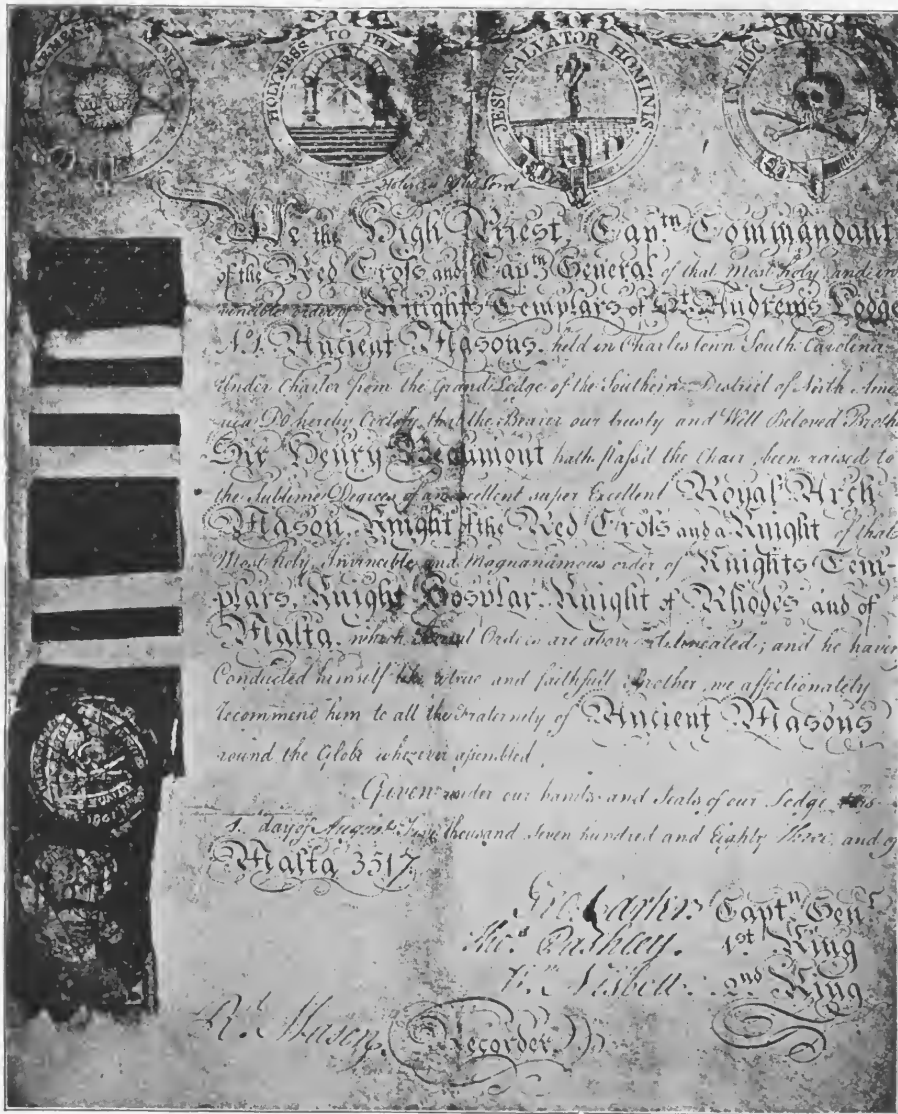 HOLYNESS TO THE
JESU SALVATOR HOMINIS
IN HOC SIGNO
We the High Priest, Cap.tn Commandant
of the Red Crofs and Cap.tn General of that Most holy and in
vincible order of Knights Templars of St. Andrews Lodge
No. 1. Ancient Masons, held in Charles town South Carolina
Under Charter from the Grand Lodge of the Southern District of North Ame
rica Do hereby Certify, that the Bearer our trusty and Well Beloved Broth
Sir Henry Beaumont hath pafs'd the Chair, been raised to
the Sublime Degrees of an excellent super Excellent Royal Arch
Mason, Knight of the Red Crofs and a Knight of that
Most holy, Invincible, and Magnanamous order of Knights Tem-
plars, Knight Hosplar, Knight of Rhodes and of
Malta, which Orders are above delineated; and he haven
Conducted himself like a true and faithfull Brother, we affectionately
recommend him to all the Fraternity of Ancient Masons
round the Globe wherever afsembled.
Given under our hands and Seals of our Lodge this
1. day of August Five thousand Seven hundred and Eighty Three, and of
Malta 3517
Geo. Carter Capt.n Gen.l
Tho.s Pashley. 1st King
Nisbett 2nd King
R.d Mason, Recorder